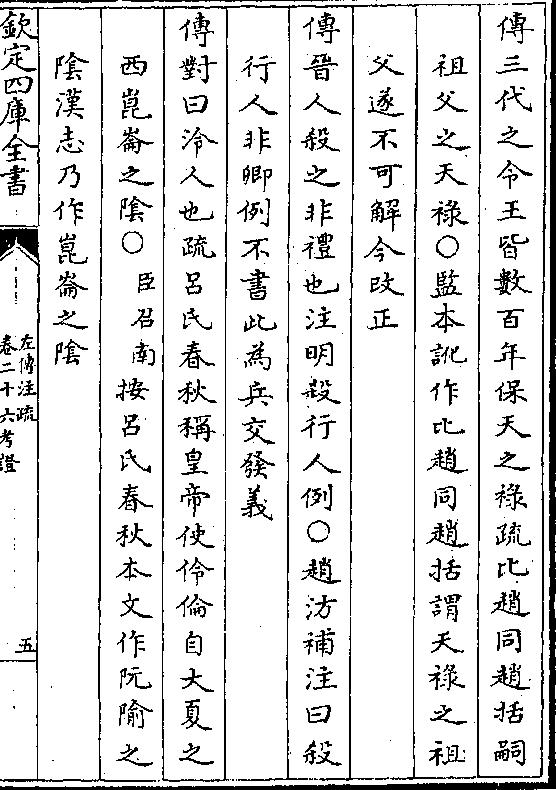 傳三代之令王皆數百年保天之祿疏比趙同趙括嗣
祖父之天祿○監本訛作比趙同趙括謂天祿之祖
父遂不可解今改正
傳晉人殺之非禮也注明殺行人例○趙汸補注曰殺
行人非卿例不書此為兵交發義
傳對曰泠人也疏呂氏春秋稱皇帝使伶倫自大夏之
西崑崙之陰○臣召南按呂氏春秋本文作阮隃之
陰漢志乃作崑崙之陰
欽定四庫全書
左傳注疏
卷二十六考證
五